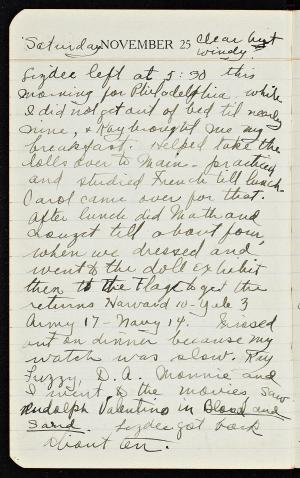 Saturday NOVEMBER 25 clear but
windy
Lizdee left at 5:30 this
morning for Philadelphia while
I did not get out of bed til nearly
nine, & Kay brought me my
breakfast. Helped take the
dolls over to Main - practiced
and studied French till lunch.
Carol came over for that.
After lunch did Math and
till about four,
when we dressed and
went to the doll exhibit
then to the Flag to get the
returns Harvard 10 - Yale 3
Army 17 - Navy 14. Missed
out on dinner because my
watch was slow. Kay
Fuzzy, D. A. Monnie and
I went to the movies, saw
Rudolph Valentino in Blood and
Sand. Lizdee got back
about ten.